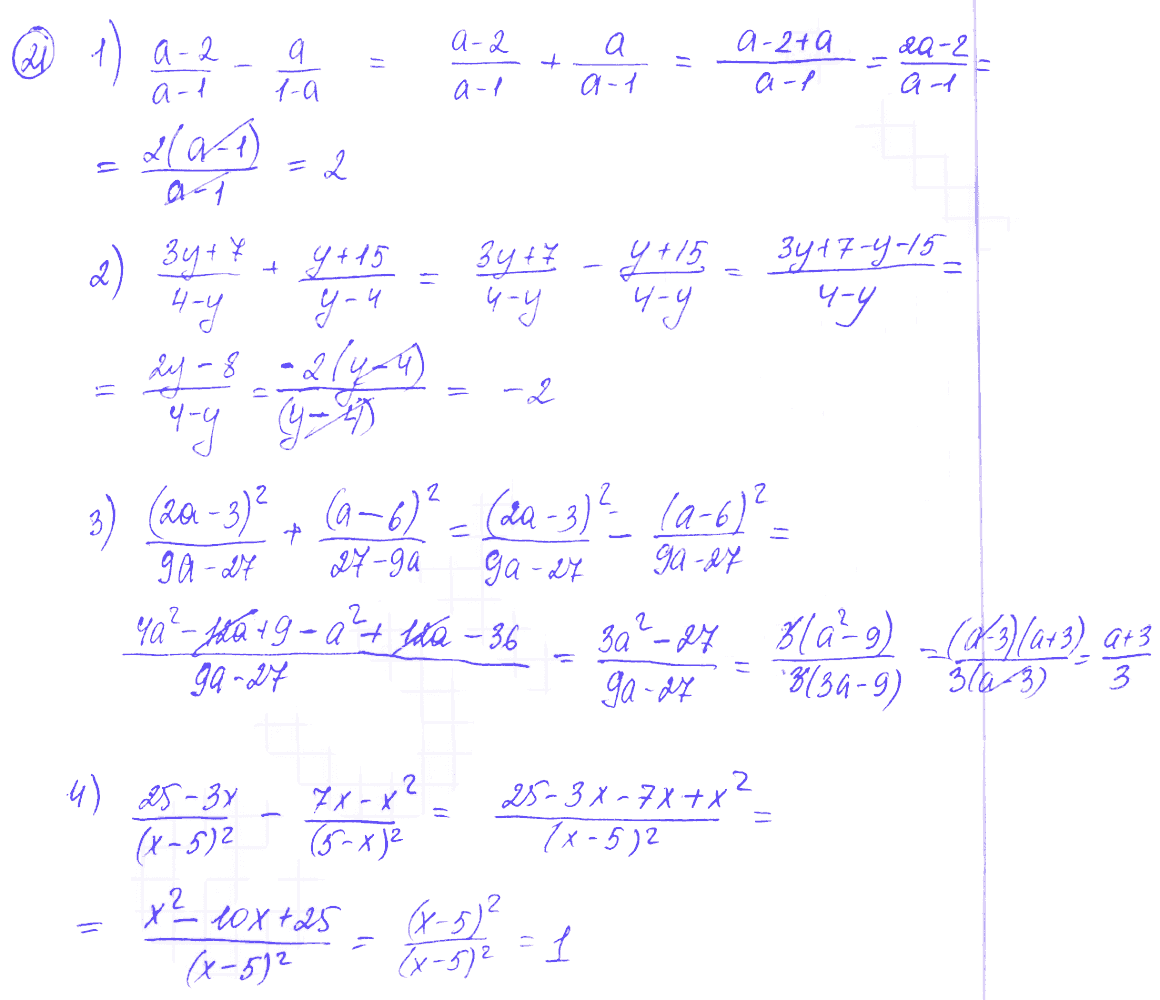 21 1) (a-2)/(a-1) - a/(1-a) = (a-2)/(a-1) + a/(a-1) = (a-2+a)/(a-1) = (2a-2)/(a-1) =
= 2(a-1)/(a-1) = 2
2) (3y+7)/(4-y) + (y+15)/(y-4) = (3y+7)/(4-y) - (y+15)/(4-y) = (3y+7-y-15)/(4-y) =
= (2y-8)/(4-y) = -2(y-4)/(y-4) = -2
3) (2a-3)²/(9a-27) + (a-6)²/(27-9a) = (2a-3)²/(9a-27) - (a-6)²/(9a-27) =
(4a²-12a+9-a²+12a-36)/(9a-27) = (3a²-27)/(9a-27) = 3(a²-9)/3(3a-9) = (a-3)(a+3)/3(a-3) = (a+3)/3
4) (25-3x)/(x-5)² - (7x-x²)/(5-x)² = (25-3x-7x+x²)/(x-5)² =
= (x²-10x+25)/(x-5)² = (x-5)²/(x-5)² = 1